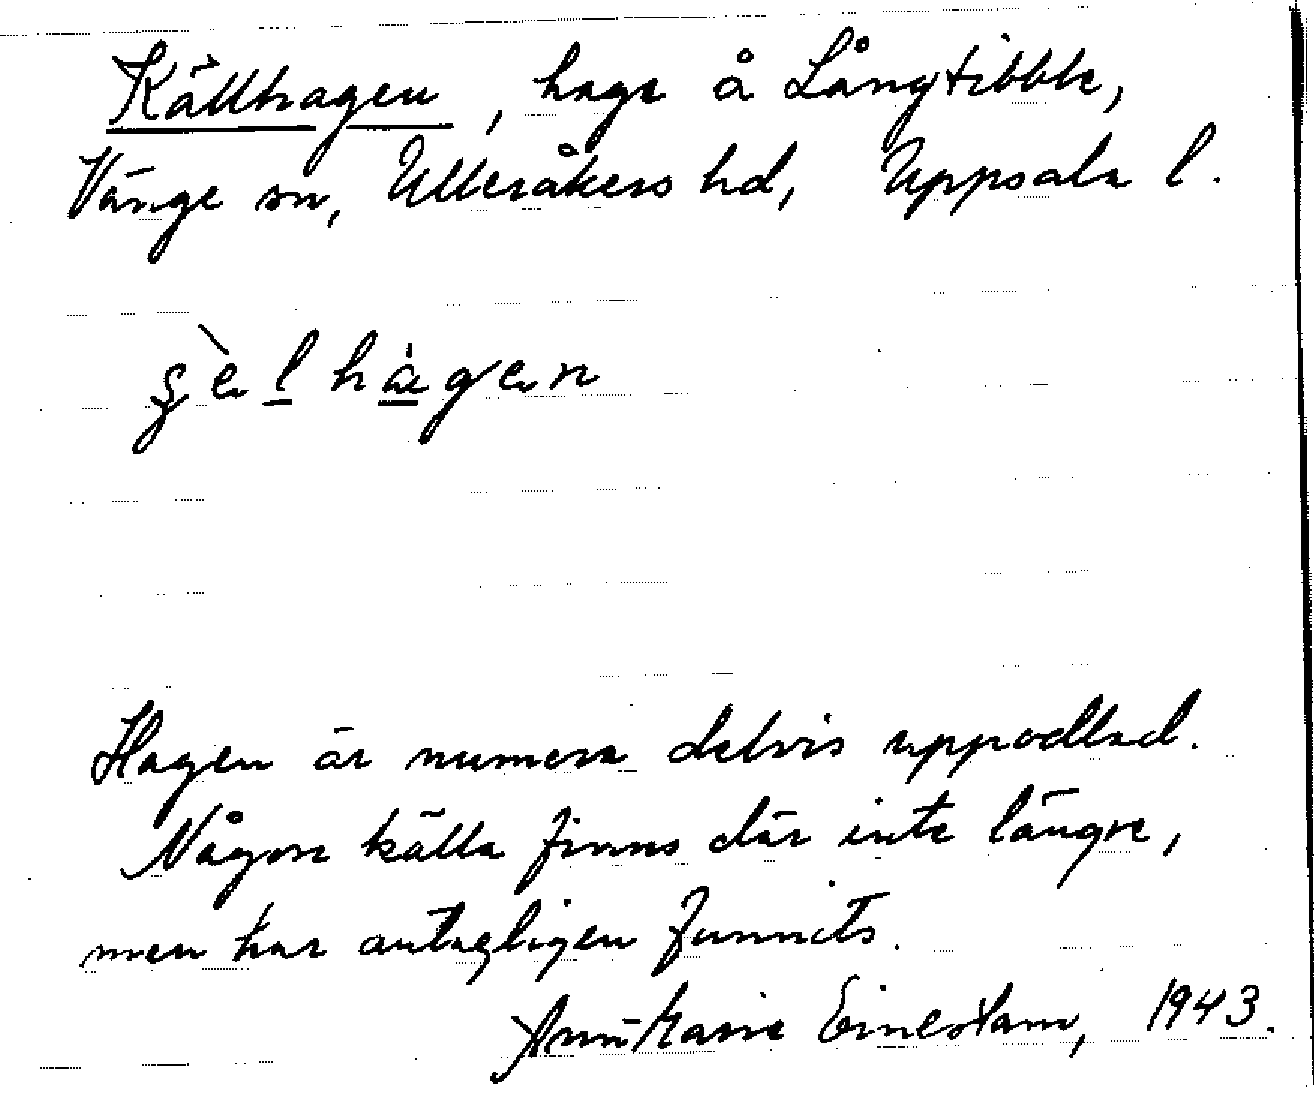 Källhagen, hage å Långtibble,
Vänge sn, Ulleråkers hd, Uppsala l.
Hagen är numera delvis uppodlad.
Någon källa finns där inte längre,
men har antagligen funnits.
1943.